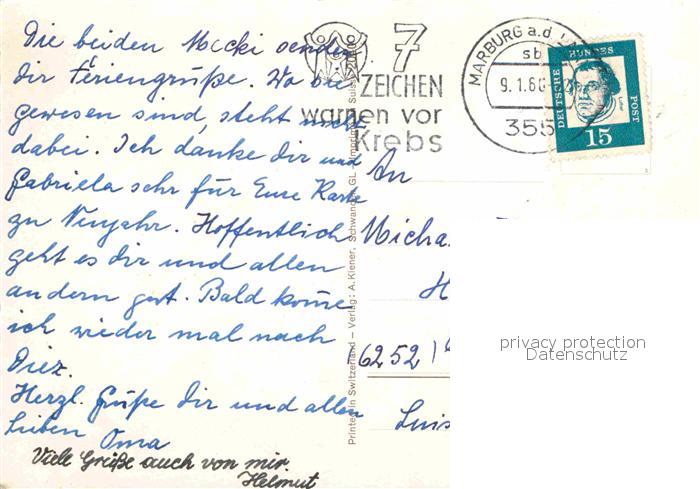 Die beiden Mecki senden
dir Feriengrüße. Wo sie
gewesen sind, steht nicht
dabei. Ich danke dir und
Gabriela sehr für Eure Karte
zu Neujahr. Hoffentlich
geht es dir und allen
andern gut. Bald komme
ich wieder mal nach
Diez.
Herzl. Grüße dir und allen
Lieben Oma
Viele Grüße auch von mir.
Helmut
7
ZEICHEN
warnen vor
Krebs
MARBURG a.d.
sb
9.1.6
355
DEUTSCHE BUNDESPOST
15
Printed in Switzerland – Verlag: A. Kiener, Schwanden GL
An
Micha
H
(6252)
Luis
privacy protection
Datenschutz